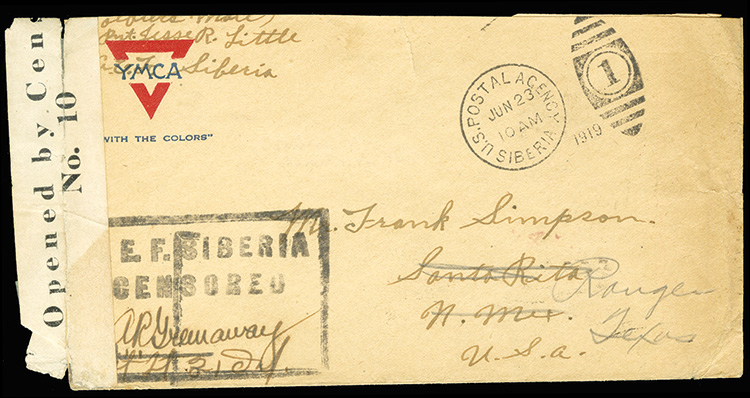 Opened by Cens
No. 10
Soldiers Mail
Pvt. Jesse R. Little
Siberia
YMCA
WITH THE COLORS"
U.S. POSTAL AGENCY
JUN 23
10 AM
SIBERIA
1919
1
Mr. Frank Simpson.
Santa Rita
N. Mex.
U.S.a.
Ranger
Texas
E.F. SIBERIA
CENSORED
AR Greenaway